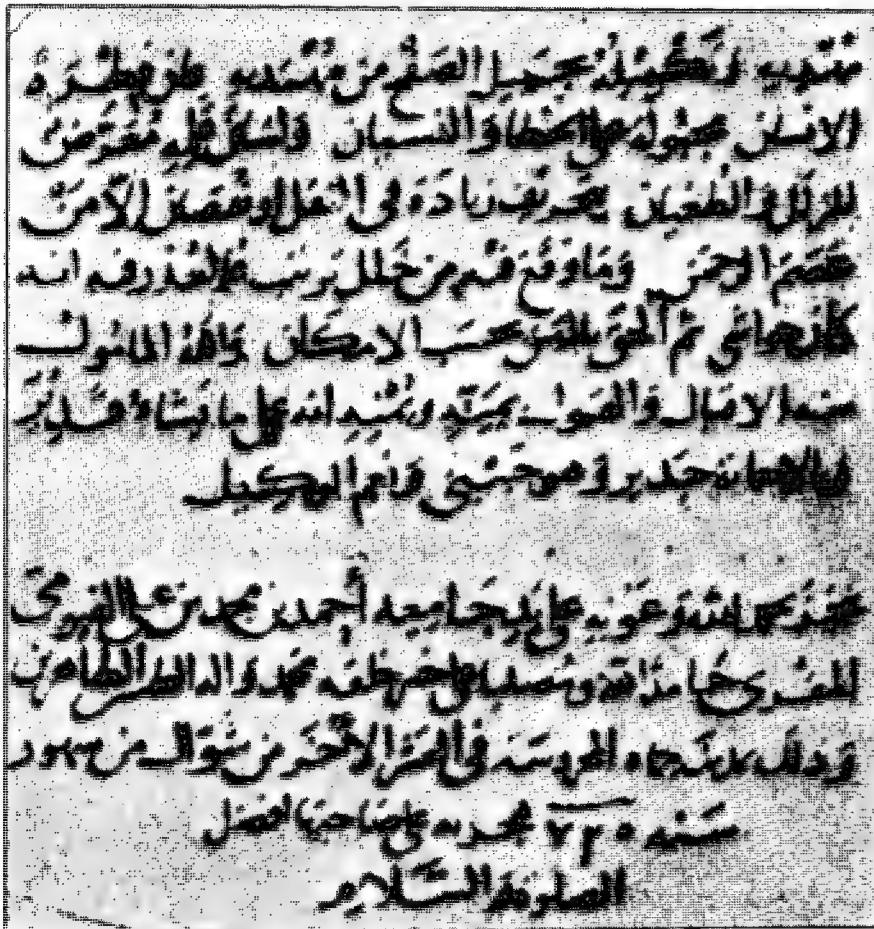 بجميل الصفح من فان فطرة
الانسان مجبولة على الخطا والنسيان ولسان قلمه معرض
للزلل والطغيان زيادة في او نقصان الا من
عصم الرحمن وما وقع فيه من خلل العذر فيه انه
كان حواشي ثم الحق بالمتن بحسب الامكان والله المامول
منه الاقبال والقبول انه على ما يشاء قدير
وبالاجابة جدير وهو حسبي ونعم الوكيل
بحمد الله وعونه على يد جامعه أحمد بن محمد بن علي الفيومي
المقري حامدا لله ومصليا على محمد واله الطاهرين
وذلك بمدينة حماه المحروسة في العشر الاخر من شوال من شهور
سنه ٧٢٥ هجريه على صاحبها افضل
الصلوة والسلام